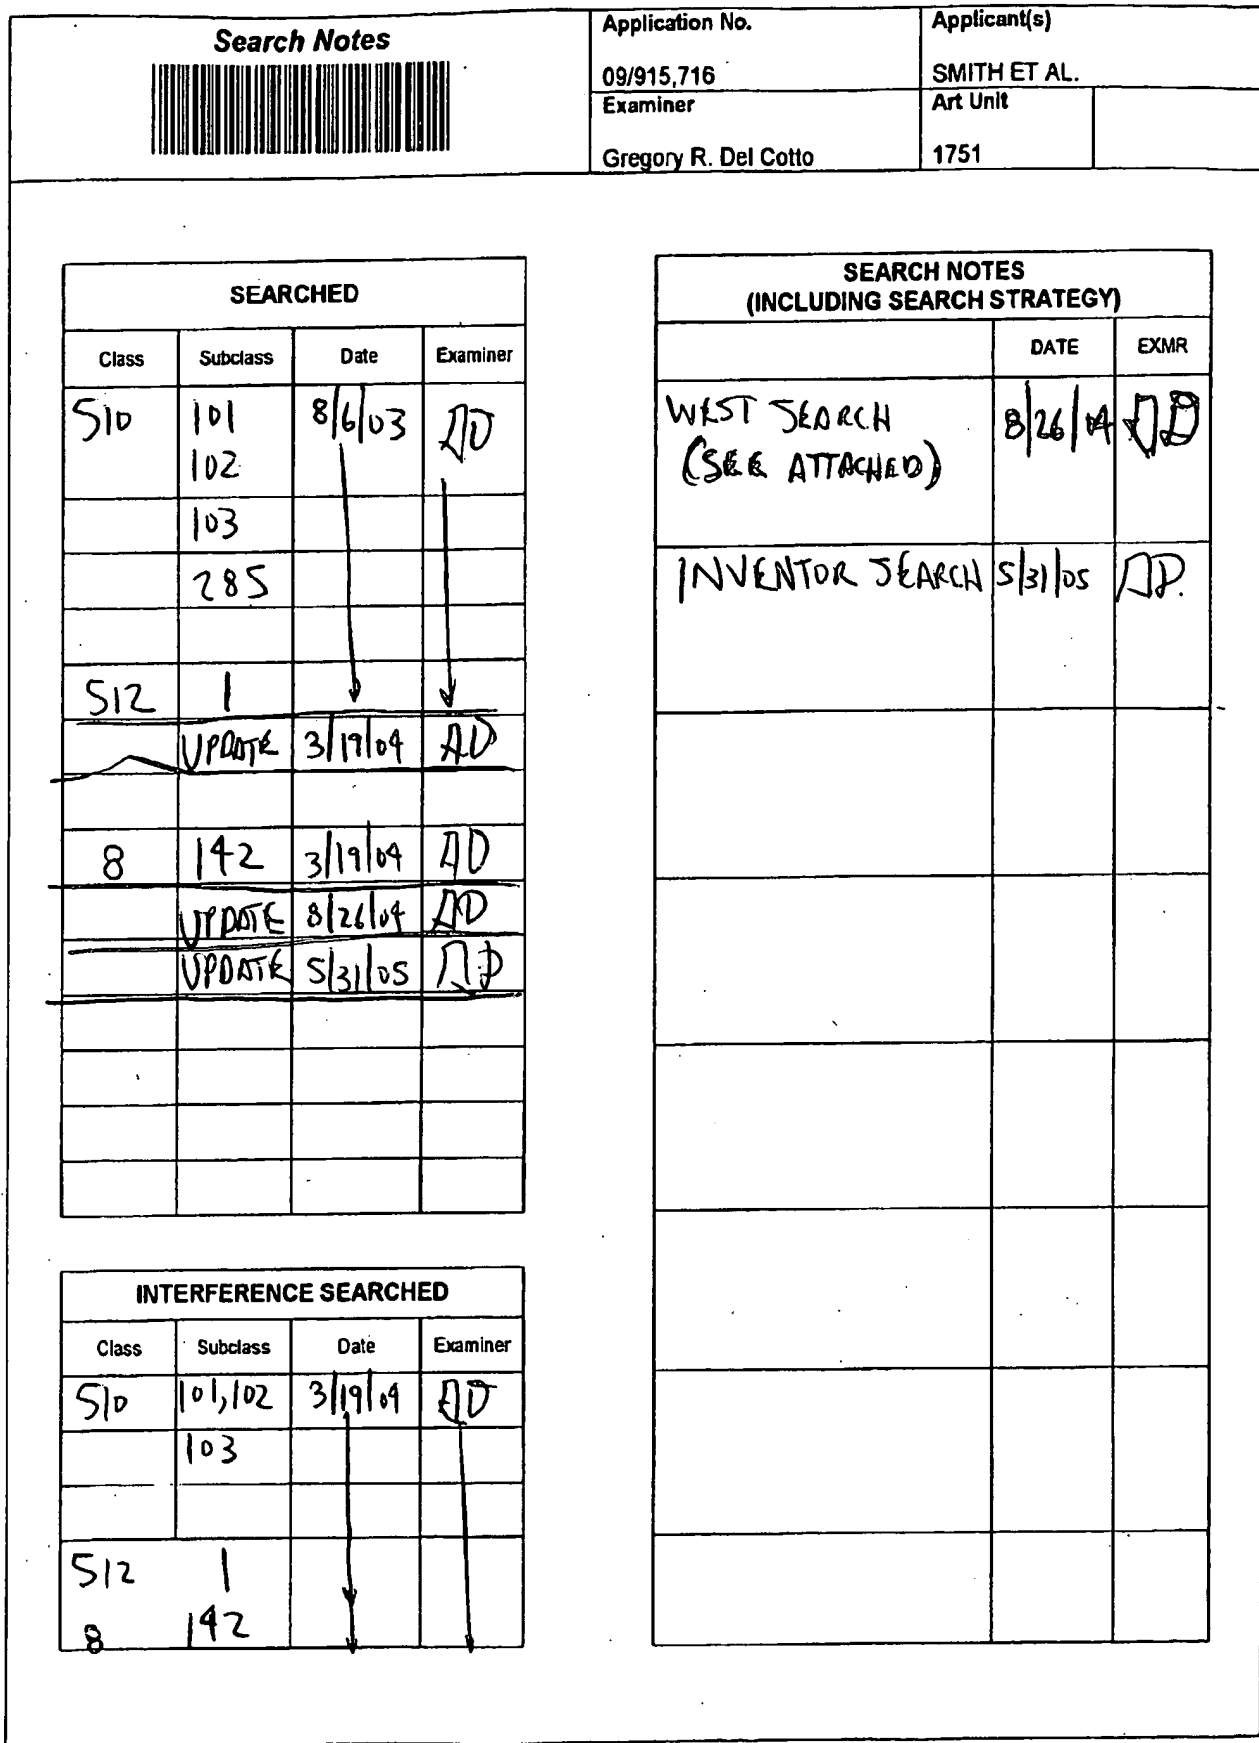 Search Notes
Application No.
09/915,716
Applicant(s)
SMITH ET AL.
Examiner
Gregory R. Del Cotto
Art Unit
1751
SEARCHED
Class Subclass Date Examiner
510 101 8/6/03
102
103
285
512 1
UPDATE 3/19/04
8 142 3/19/04
UPDATE 8/26/04
UPDATE 5/31/05
INTERFERENCE SEARCHED
Class Subclass Date Examiner
510 101,102 3/19/04
103
512 1
8 142
SEARCH NOTES
(INCLUDING SEARCH STRATEGY)
DATE EXMR
WEST SEARCH 8/26/04
(SEE ATTACHED)
INVENTOR SEARCH 5/31/05